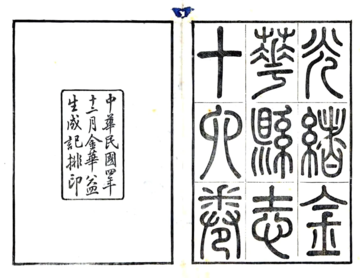 光緒金
華縣志
十六卷
中華民國四年
十二月金華益
生成記排印